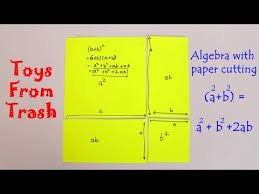 Toys
From
Trash
(a+b)²
=(a+b)(a+b)
= a²+b²+ab+ab
= a²+b²+2ab
a²
ab
ab
b²
a
b
a
b
Algebra with
paper cutting
(a²+b²) =
a²+b²+2ab